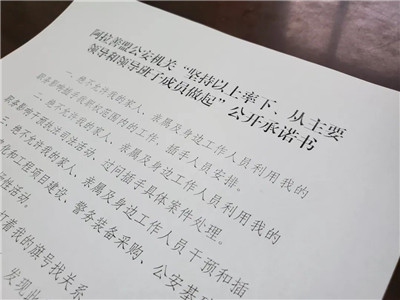 阿拉善盟公安机关“坚持以上率下、从主要
领导和领导班子成员做起”公开承诺书
一、绝不允许我的家人、亲属及身边工作人员利用我的
职务影响插手我职权范围内的工作，插手人员安排。
二、绝不允许我的家人、亲属及身边工作人员利用我的
职务影响干预执法司法活动、过问插手具体案件处理。
绝不允许我的家人、亲属及身边工作人员干预和插
化和工程项目建设、警务装备采购、公安基
性活动。
打着我的旗号找关系
发现此